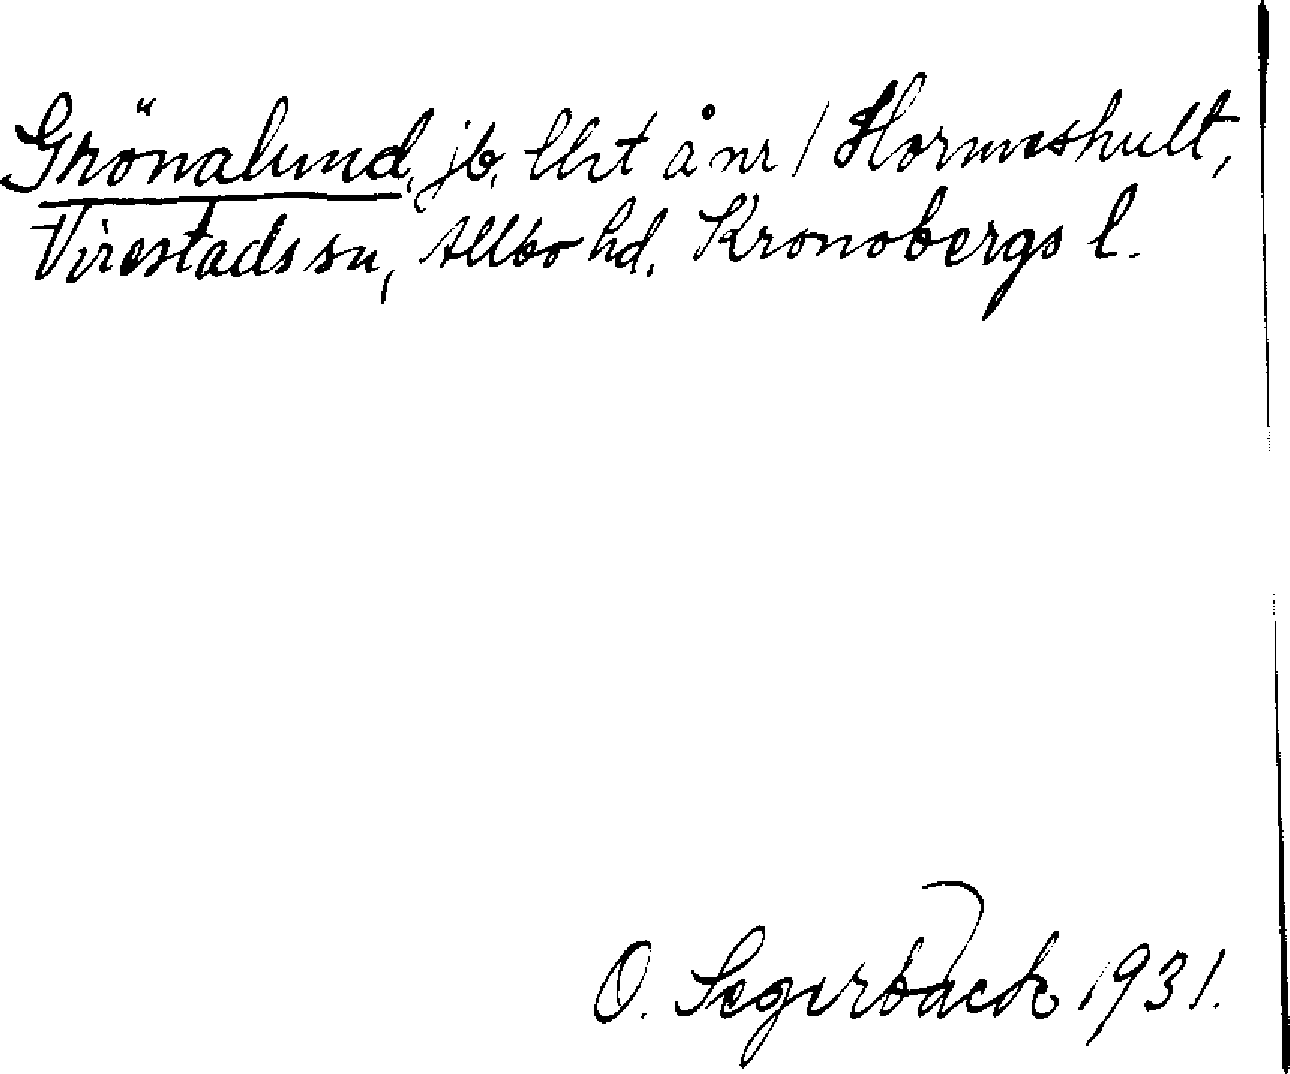 Grönalund, jb, lht å nr 1 Hormeshult,
Virestads sn, Allbo hd, Kronobergs l.
O. Segerbäck 1931.